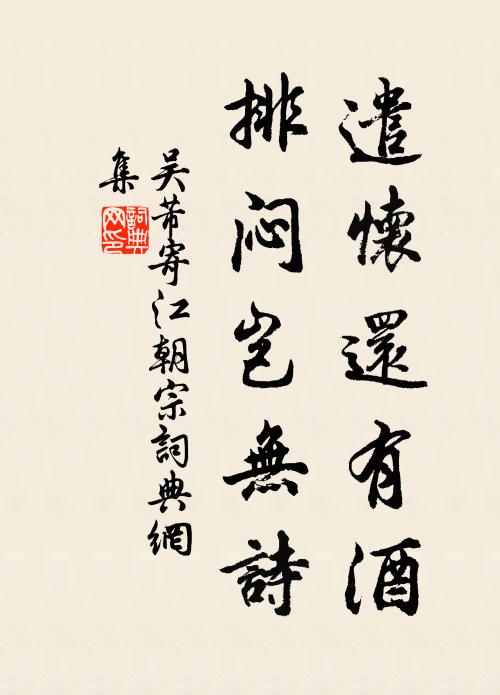 遣懷還有酒
排悶豈無詩
吴芾寄江朝宗詞典網
集
詞典網印